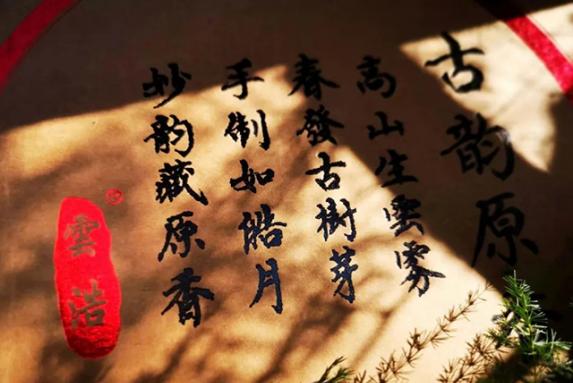 古韵原
高山生雲雾
春發古樹芽
手制如皓月
妙韵藏原香
雲浩